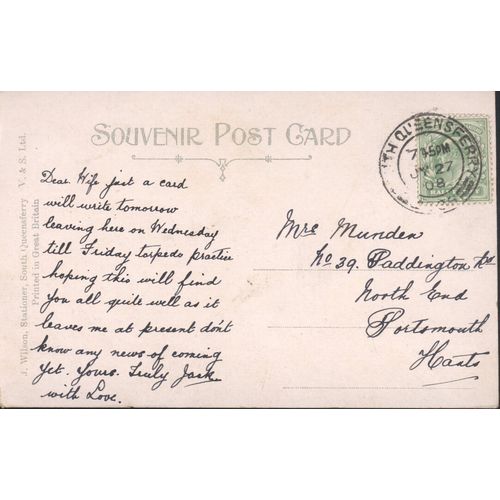 SOUVENIR POST CARD
Dear Wife just a card
will write tomorrow
leaving here on Wednesday
till Friday torpedo practice
hoping this will find
you all quite well as it
leaves me at present don't
know any news of coming
yet. Yours. Truly Jack
with Love.
Mrs Munden
No 39. Paddington Rd
North End
Portsmouth
Hants
TH QUEENSFERRY
7 45PM
27
08
J. Wilson, Stationer, South Queensferry V. & S. Ltd.
Printed in Great Britain